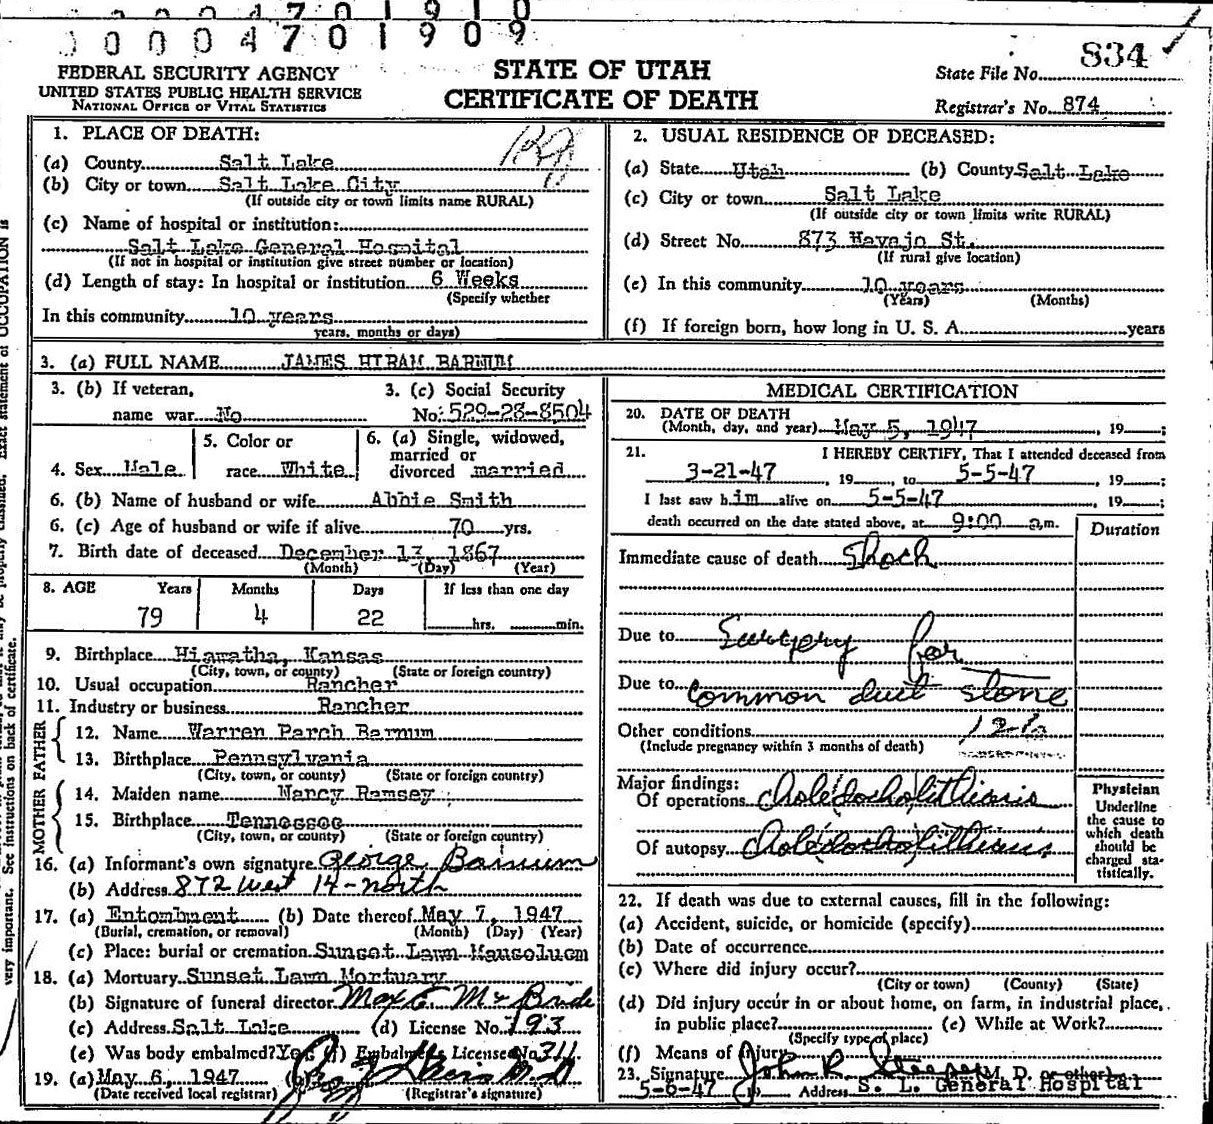 0004701910
0004701909
FEDERAL SECURITY AGENCY
UNITED STATES PUBLIC HEALTH SERVICE
NATIONAL OFFICE OF VITAL STATISTICS
STATE OF UTAH
CERTIFICATE OF DEATH
State File No. 834
Registrar's No. 874
1. PLACE OF DEATH:
(a) County Salt Lake
(b) City or town Salt Lake City
(If outside city or town limits name RURAL)
(c) Name of hospital or institution:
Salt Lake General Hospital
(If not in hospital or institution give street number or location)
(d) Length of stay: In hospital or institution 6 Weeks
(Specify whether
In this community 10 years
years, months or days)
2. USUAL RESIDENCE OF DECEASED:
(a) State Utah (b) County Salt Lake
(c) City or town Salt Lake
(If outside city or town limits write RURAL)
(d) Street No. 873 Navajo St.
(If rural give location)
(e) In this community 10 years
(Years) (Months)
(f) If foreign born, how long in U. S. A. years
3. (a) FULL NAME JAMES HIRAM BARNUM
3. (b) If veteran,
name war No
3. (c) Social Security
No. 529-28-8504
4. Sex Male
5. Color or
race White
6. (a) Single, widowed,
married or
divorced married
6. (b) Name of husband or wife Abbie Smith
6. (c) Age of husband or wife if alive 70 yrs.
7. Birth date of deceased December 13, 1867
(Month) (Day) (Year)
8. AGE Years Months Days If less than one day
79 4 22 hrs. min.
9. Birthplace Hiawatha, Kansas
(City, town, or county) (State or foreign country)
10. Usual occupation Rancher
11. Industry or business Rancher
FATHER
12. Name Warren Parch Barnum
13. Birthplace Pennsylvania
(City, town, or county) (State or foreign country)
MOTHER
14. Maiden name Nancy Ramsey
15. Birthplace Tennessee
(City, town, or county) (State or foreign country)
16. (a) Informant's own signature George Barnum
(b) Address 872 West 14-north
17. (a) Entombment (b) Date thereof May 7, 1947
(Burial, cremation, or removal) (Month) (Day) (Year)
(c) Place: burial or cremation Sunset Lawn Mausoluem
18. (a) Mortuary Sunset Lawn Mortuary
(b) Signature of funeral director Max E. McBride
(c) Address Salt Lake (d) License No. 193
(e) Was body embalmed? Yes (f) Embalmer License No. 311
19. (a) May 6, 1947 (b)
(Date received local registrar) (Registrar's signature)
MEDICAL CERTIFICATION
20. DATE OF DEATH
(Month, day, and year) May 5, 1947, 19 ;
21. I HEREBY CERTIFY, That I attended deceased from
3-21-47, 19 , to 5-5-47, 19 ;
I last saw him alive on 5-5-47, 19 ;
death occurred on the date stated above, at 9:00 a.m.
Duration
Immediate cause of death Shock
Due to Surgery for
Due to common duct stone
Other conditions
(Include pregnancy within 3 months of death)
Major findings:
Of operations Choledocholithiasis
Of autopsy Choledocholithiasis
Physician
Underline
the cause to
which death
should be
charged sta-
tistically.
22. If death was due to external causes, fill in the following:
(a) Accident, suicide, or homicide (specify)
(b) Date of occurrence
(c) Where did injury occur?
(City or town) (County) (State)
(d) Did injury occur in or about home, on farm, in industrial place,
in public place? (e) While at Work?
(Specify type of place)
(f) Means of Injury
23. Signature John R. (M. D. or other)
5-6-47 Address S. L. General Hospital
very important. See instructions on back of certificate.